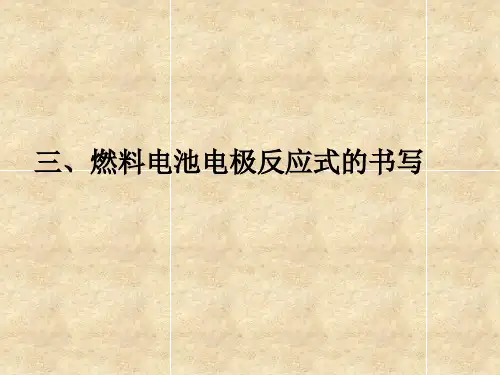 三、燃料电池电极反应式的书写